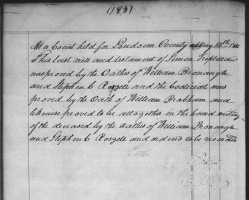 (183)
At a Court held for Loudoun County
This last will and testament of Simon
was proved by the Oaths of William
and Stephen C and the Codicil was
proved by the Oath of William and
likewise proved to be altogether in the hand writing
of the deceased by the Oaths of William
and Stephen C and ordered to be recorded